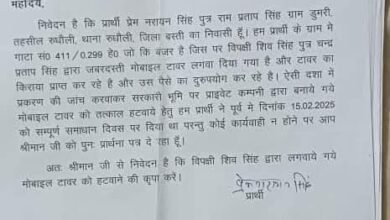 महोदय,
निवेदन है कि प्रार्थी प्रेम नरायन सिंह पुत्र राम प्रताप सिंह ग्राम डुमरी,
तहसील रुधौली, थाना रुधौली, जिला बस्ती का निवासी हूँ। हम प्रार्थी के ग्राम मे
गाटा सं0 411/0.299 हे0 जो कि बंजर है जिस पर विपक्षी शिव सिंह पुत्र चन्द्र
प्रताप सिंह द्वारा जबरदस्ती मोबाइल टावर लगवा दिया गया है और टावर का
किराया प्राप्त कर रहे है और उस पैसे का दुरुपयोग कर रहे है। ऐसी दशा मे
प्रकरण की जांच करवाकर सरकारी भूमि पर प्राइवेट कम्पनी द्वारा बनाये गये
मोबाइल टावर को तत्काल हटवाये हेतु हम प्रार्थी ने पूर्व मे दिनांक 15.02.2025
को सम्पूर्ण समाधान दिवस पर दिया था परन्तु कोई कार्यवाही न होने पर आप
श्रीमान जी को पुनः प्रार्थना पत्र दे रहा हूँ।
अतः श्रीमान जी से निवेदन है कि विपक्षी शिव सिंह द्वारा लगवाये गये
मोबाइल टावर को हटवाने की कृपा करें।
प्रेम नारायन सिंह
प्रार्थी